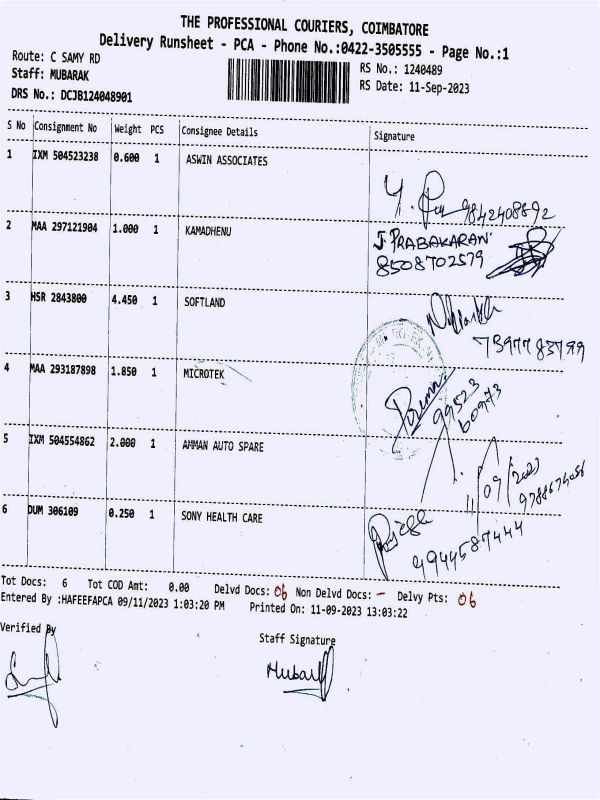 THE PROFESSIONAL COURIERS, COIMBATORE
Delivery Runsheet - PCA - Phone No.:0422-3505555 - Page No.:1
Route: C SAMY RD
Staff: MUBARAK
DRS No.: DCJB124048901
RS No.: 1240489
RS Date: 11-Sep-2023
S No Consignment No Weight PCS Consignee Details Signature
1 IXM 504523238 0.600 1 ASWIN ASSOCIATES
9842408892
2 MAA 297121904 1.000 1 KAMADHENU
J. PRABAKARAN
8508702579
3 HSR 2843800 4.450 1 SOFTLAND
7397783799
4 MAA 293187898 1.850 1 MICROTEK
99523
60973
5 IXM 504554862 2.000 1 AMMAN AUTO SPARE
11/09/2023
6 DUM 306109 0.250 1 SONY HEALTH CARE
9944587444
Tot Docs: 6 Tot COD Amt: 0.00 Delvd Docs: 06 Non Delvd Docs: - Delvy Pts: 06
Entered By :HAFEEFAPCA 09/11/2023 1:03:20 PM Printed On: 11-09-2023 13:03:22
Verified By
Staff Signature
Mubarak